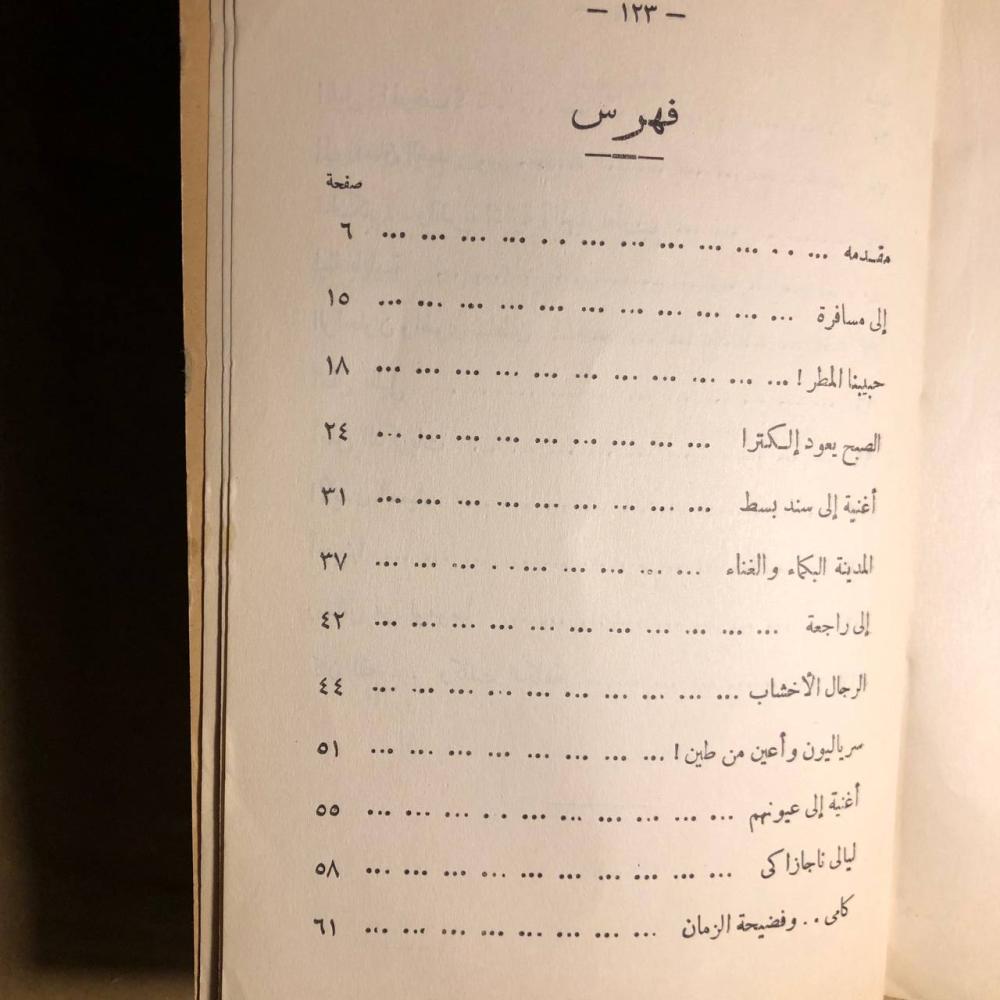 — ١٢٣ —
فهرس
صفحة
مقدمه ... .. ... ... ... ... ... .. ... ... ... ... ٦
إلى مسافرة ... ... ... ... ... ... ... ... ... ... ... ١٥
حبيبنا المطر ! ... ... ... ... ... ... ... ... ... ... ... ١٨
الصبح يعود إلكترا ... ... ... ... ... ... ... ... ... ٢٤
أغنية إلى سند بسط ... ... ... ... ... ... ... ... ... ٣١
المدينة البكماء والغناء ... ... ... ... ... .. ... ... ... ٣٧
إلى راجعة ... ... ... ... ... ... ... ... ... ... ... ٤٢
الرجال الأخشاب ... ... ... ... ... ... ... ... ... ... ٤٤
سرياليون وأعين من طين ! ... ... ... ... ... ... ... ... ٥١
أغنية إلى عيونهم ... ... ... ... ... ... .. ... ... ... ٥٥
ليالى ناجازاكى ... ... ... ... ... ... ... ... ... ... ٥٨
كامى .. وفضيحة الزمان ... ... ... ... ... ... ... ... ٦١